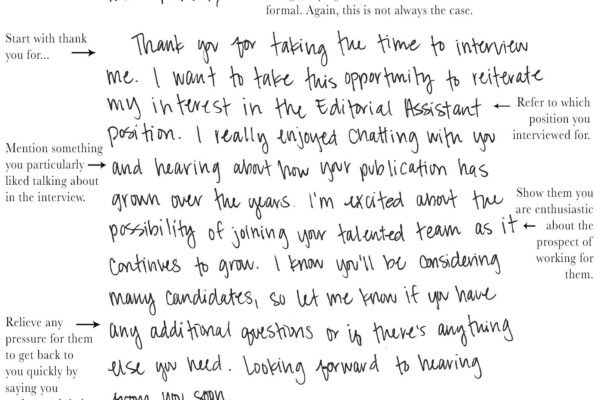 formal. Again, this is not always the case.
Start with thank
you for...
Thank you for taking the time to interview
me. I want to take this opportunity to reiterate
my interest in the Editorial Assistant
position. I really enjoyed chatting with you
and hearing about how your publication has
grown over the years. I'm excited about the
possibility of joining your talented team as it
continues to grow. I know you'll be considering
many candidates, so let me know if you have
any additional questions or if there's anything
else you need. Looking forward to hearing
from you soon.
Refer to which
position you
interviewed for.
Mention something
you particularly
liked talking about
in the interview.
Show them you
are enthusiastic
about the
prospect of
working for
them.
Relieve any
pressure for them
to get back to
you quickly by
saying you